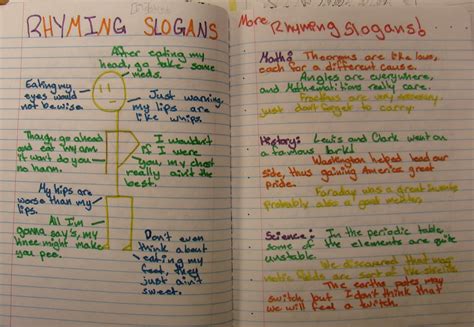 RHYMING SLOGANS
After eating my
head, go take some
meds.
Eating my
eyes would
not bewise.
Just warning,
my lips are
like whips.
Though go ahead
and eat my arm
it want do you
no harm.
I wouldn't
if I were
you, my chest
really aint the
best.
My hips are
worse than my
lips.
All I'm
gonna say's, my
knee might make
you pee.
Don't even
think about
eating my
feet, they
just ain't
sweet.
More Rhyming Slogans!
Maths: Theorems are like laws,
each for a different cause.
Angles are everywhere,
and Mathematitions really care.
Fractions are very necessary,
just don't forget to carry.
History: Lewis and Clark went on
a famous
Washington helped lead our
side, thus gaining America great
pride.
Faraday was a great
probably also a good
Science: In the periodic table,
some of the elements are quite
unstable.
We discovered that
are sort of like
The earths poles may
switch but I don't think that
we will feel a twitch.